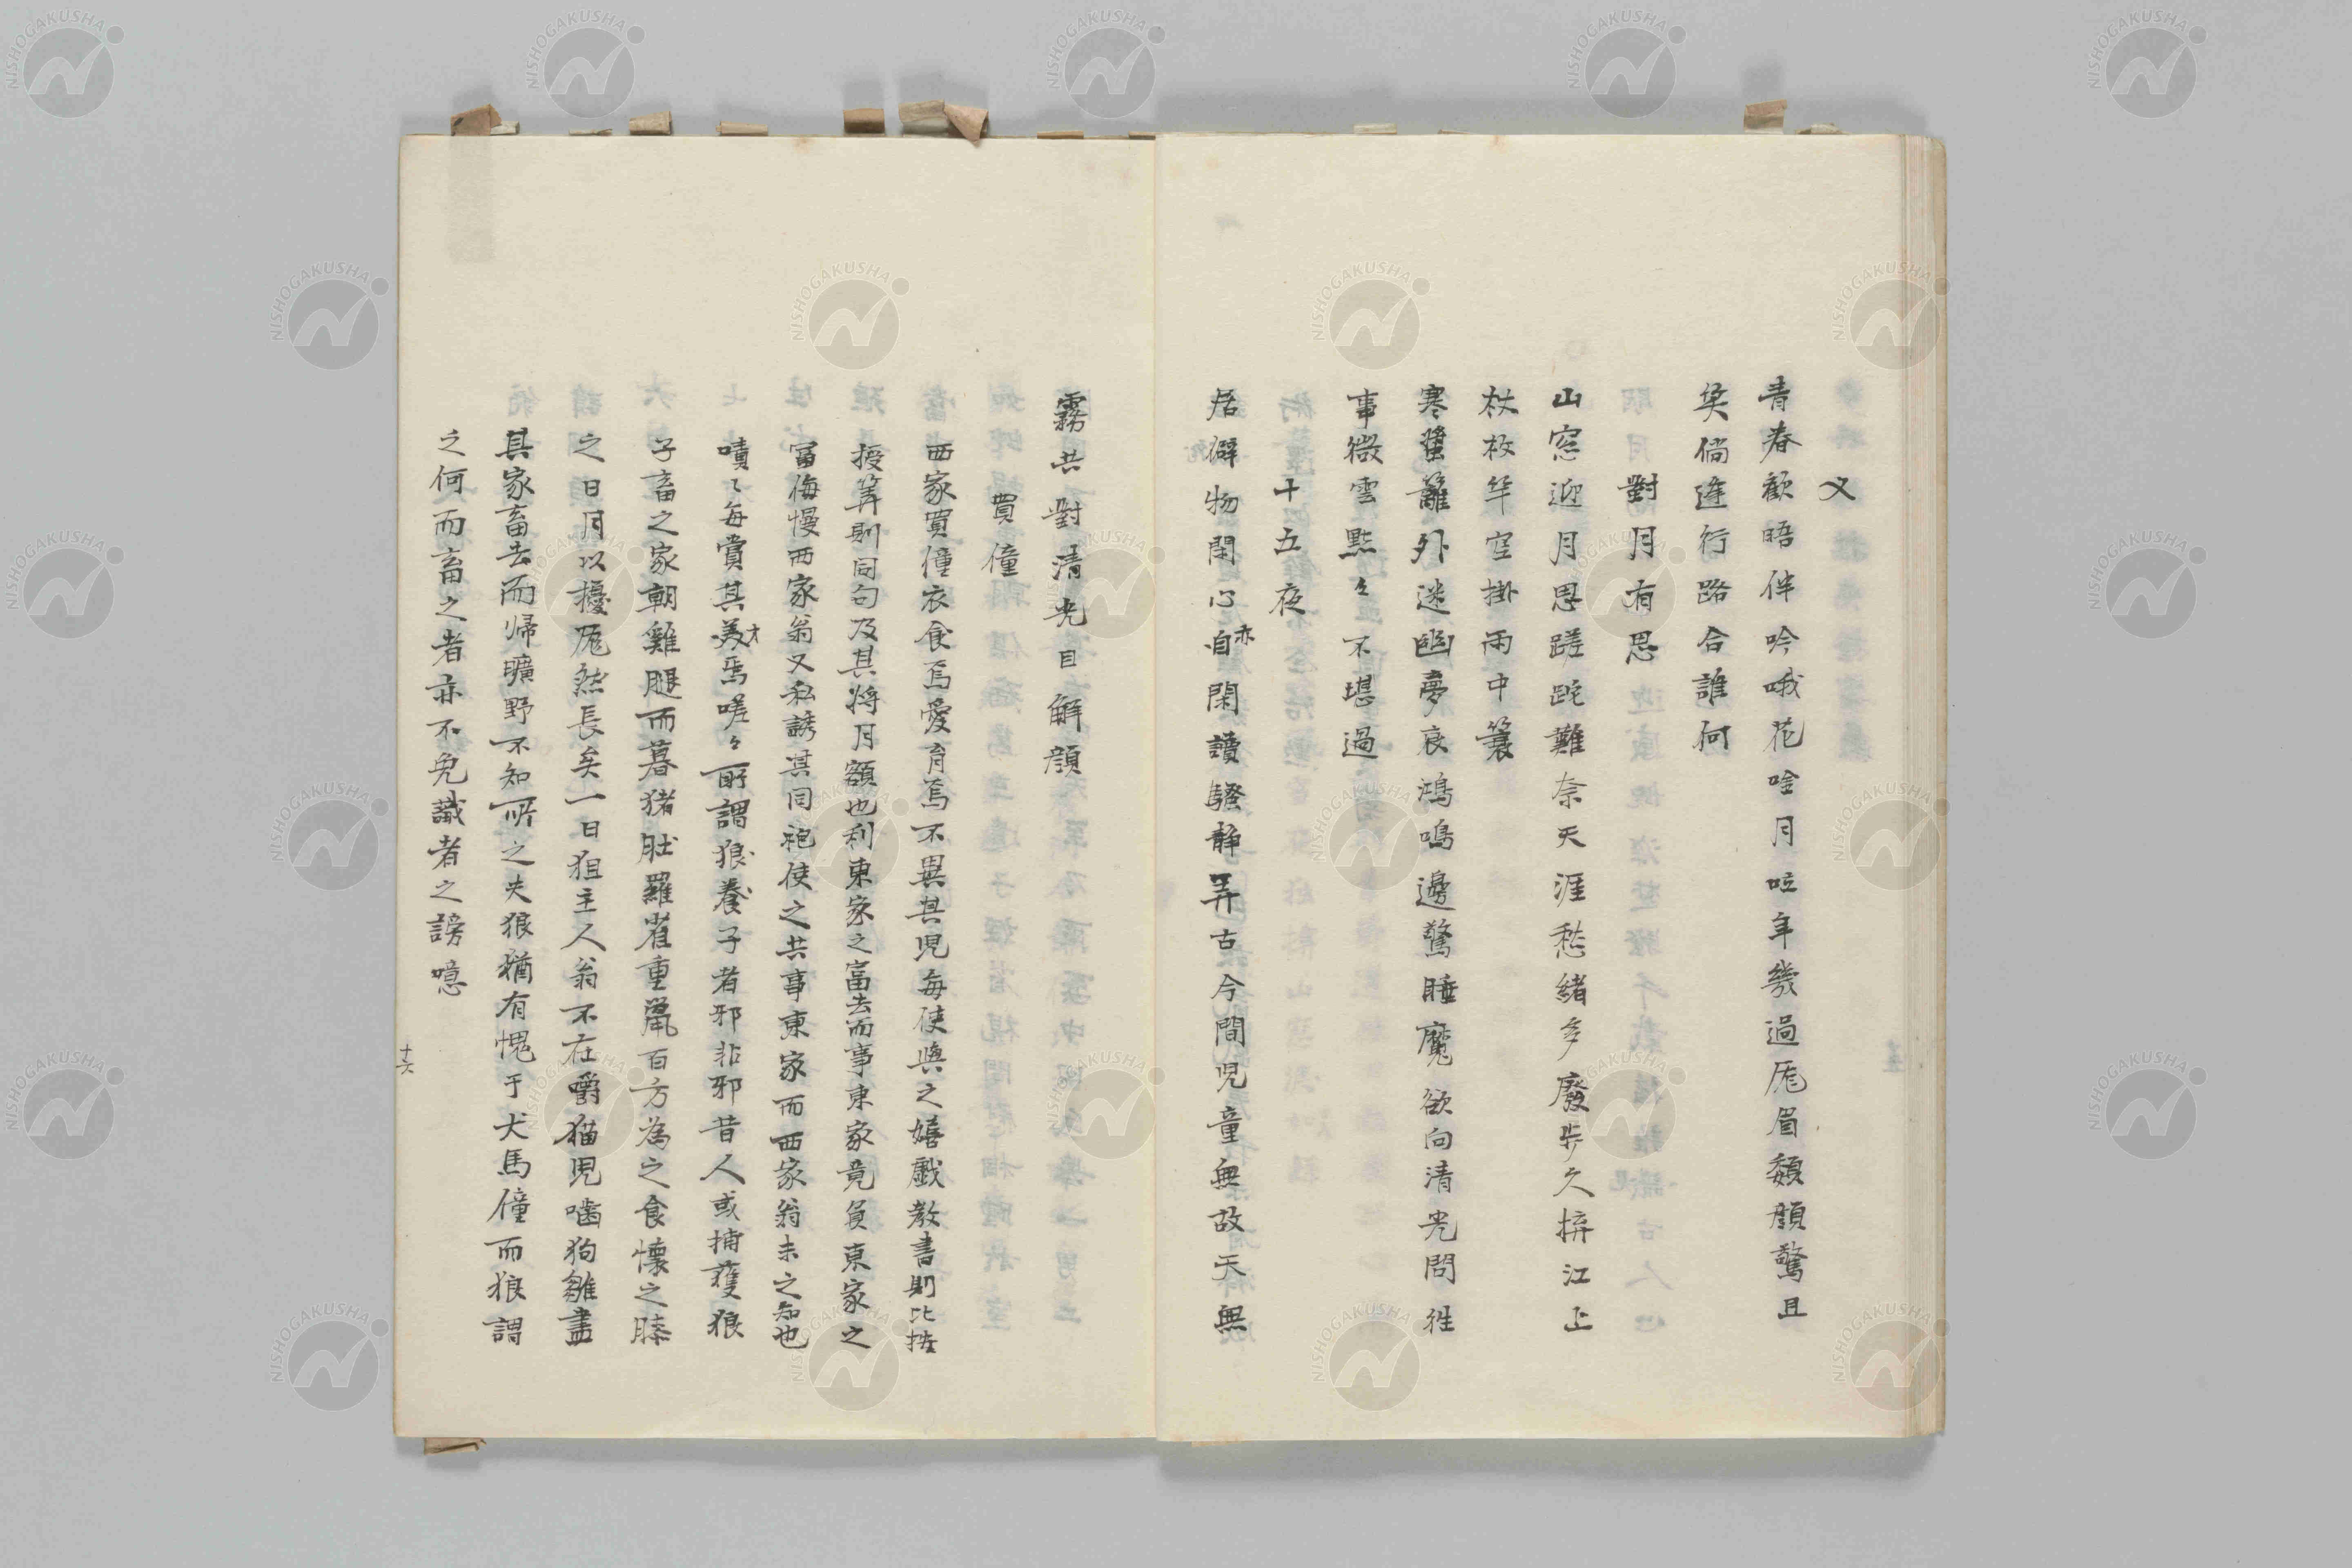 又
青春歓晤伴吟哦花啥月啦年幾過厖眉頽顔驚且
矣倘逢行路合誰何
對月有思
山窓迎月思蹉跎難奈天涯愁緒多廢歩久擠江上
杖枚竿空掛雨中簑
寒螿籬外迷幽夢哀鴻鳴邊驚睡魔欲向清光問往
事微雲點々不堪過
十五夜
居僻物閑心自亦閑讀騒静弄古今間児童無故天無
霧共對清光自解顔
買僮
西家買僮衣食焉愛育焉不異其児毎使與之嬉戲教書則比按
授筭則同句及其将月額也利東家之富去而事東家竟負東家之
富侮慢西家翁又私誘其同袍使之共事東家而西家翁未之知也
嘖々毎賞其美才焉嗟々所謂狼養子者邪非邪昔人或捕獲狼
子畜之家朝雞腿而暮猪肚羅雀重鼠百方為之食懐之膝
之日月以擾厖然長矣一日狙主人翁不在嚼猫児噛狗雛盡
其家畜去而帰曠野不知所之夫狼猶有愧于犬馬僮而狼謂
之何而畜之者亦不免識者之謗噫
十六
NISHOGAKUSHA